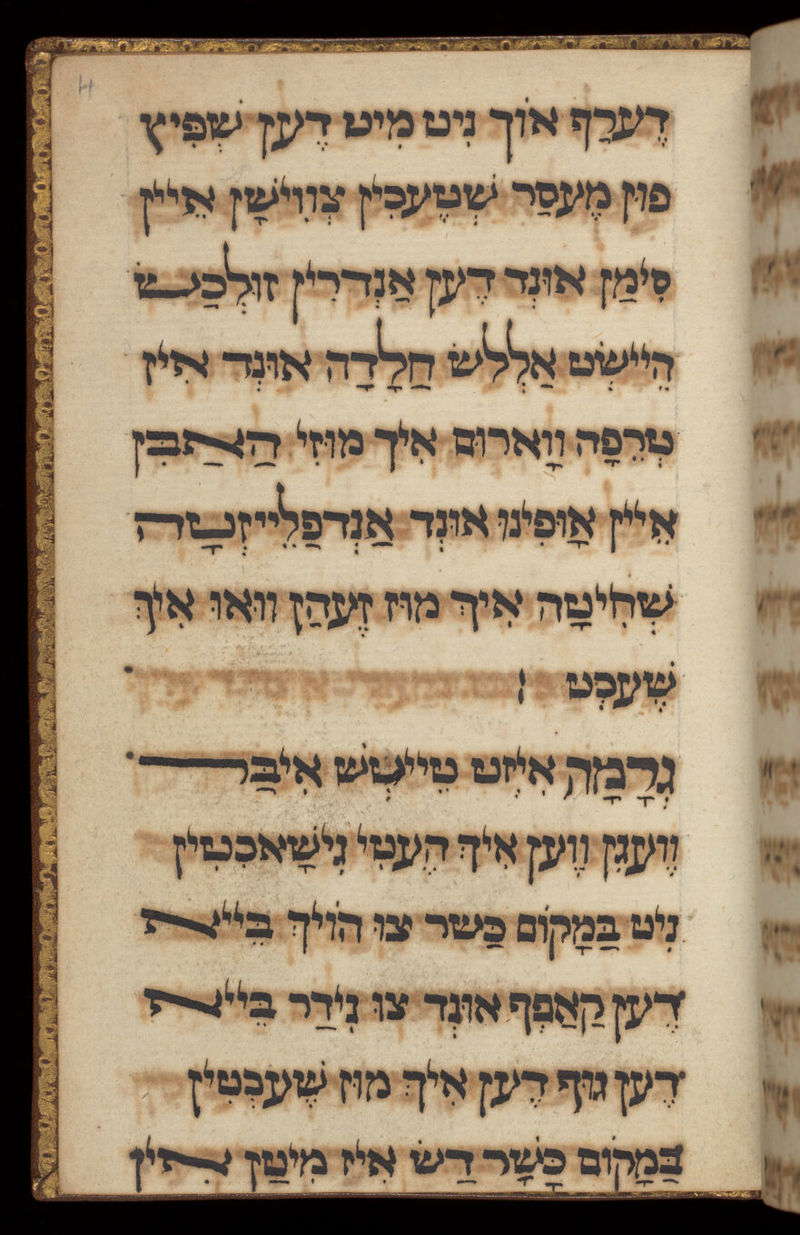 דֶערַף אוֹך נִיט מִיט דֶעןְ שְׁפִּיץ
פון מֶעסַר שְׁטֶעכִין צְווִישָׁן אֵיין
סִימַן אוּנְד דֶען אַנְדרִין זוּלְכַשׂ
הֵיישְׂט אַלְלשׂ חַלָדָה אוּנְד אִיז
טְרֵפָה ווָארוּם אִיך מוּזִי הַאבִּין
אֵיין אָוּפִינוּ אוּנְד אַנְדפְלֵייזְטָה
שְׁחִיטָה אִיך מוּז זֶעהַן וואוּ אִיךְ
שֶׁעכְט
גְרָמָה אִיזְט טֵייטְשׁ אִיבַּר
ווֶעגִןְ ווֶען אִיךְ הֶעטִי גִישָׁאכְטִין
נִיט בַּמָקוֹם כַּשר צוּ הוֹיךְ בֵּייא
דֶען קַאפְּףְ אוּנְד צוּ נִידַר בֵּייא
דֶען גוּף דֶען אִיךְ מוּז שֶׁעכְטִין
בַּמָקוֹם כָּשָׁר דַשׂ אִיז מִיטַן אִין